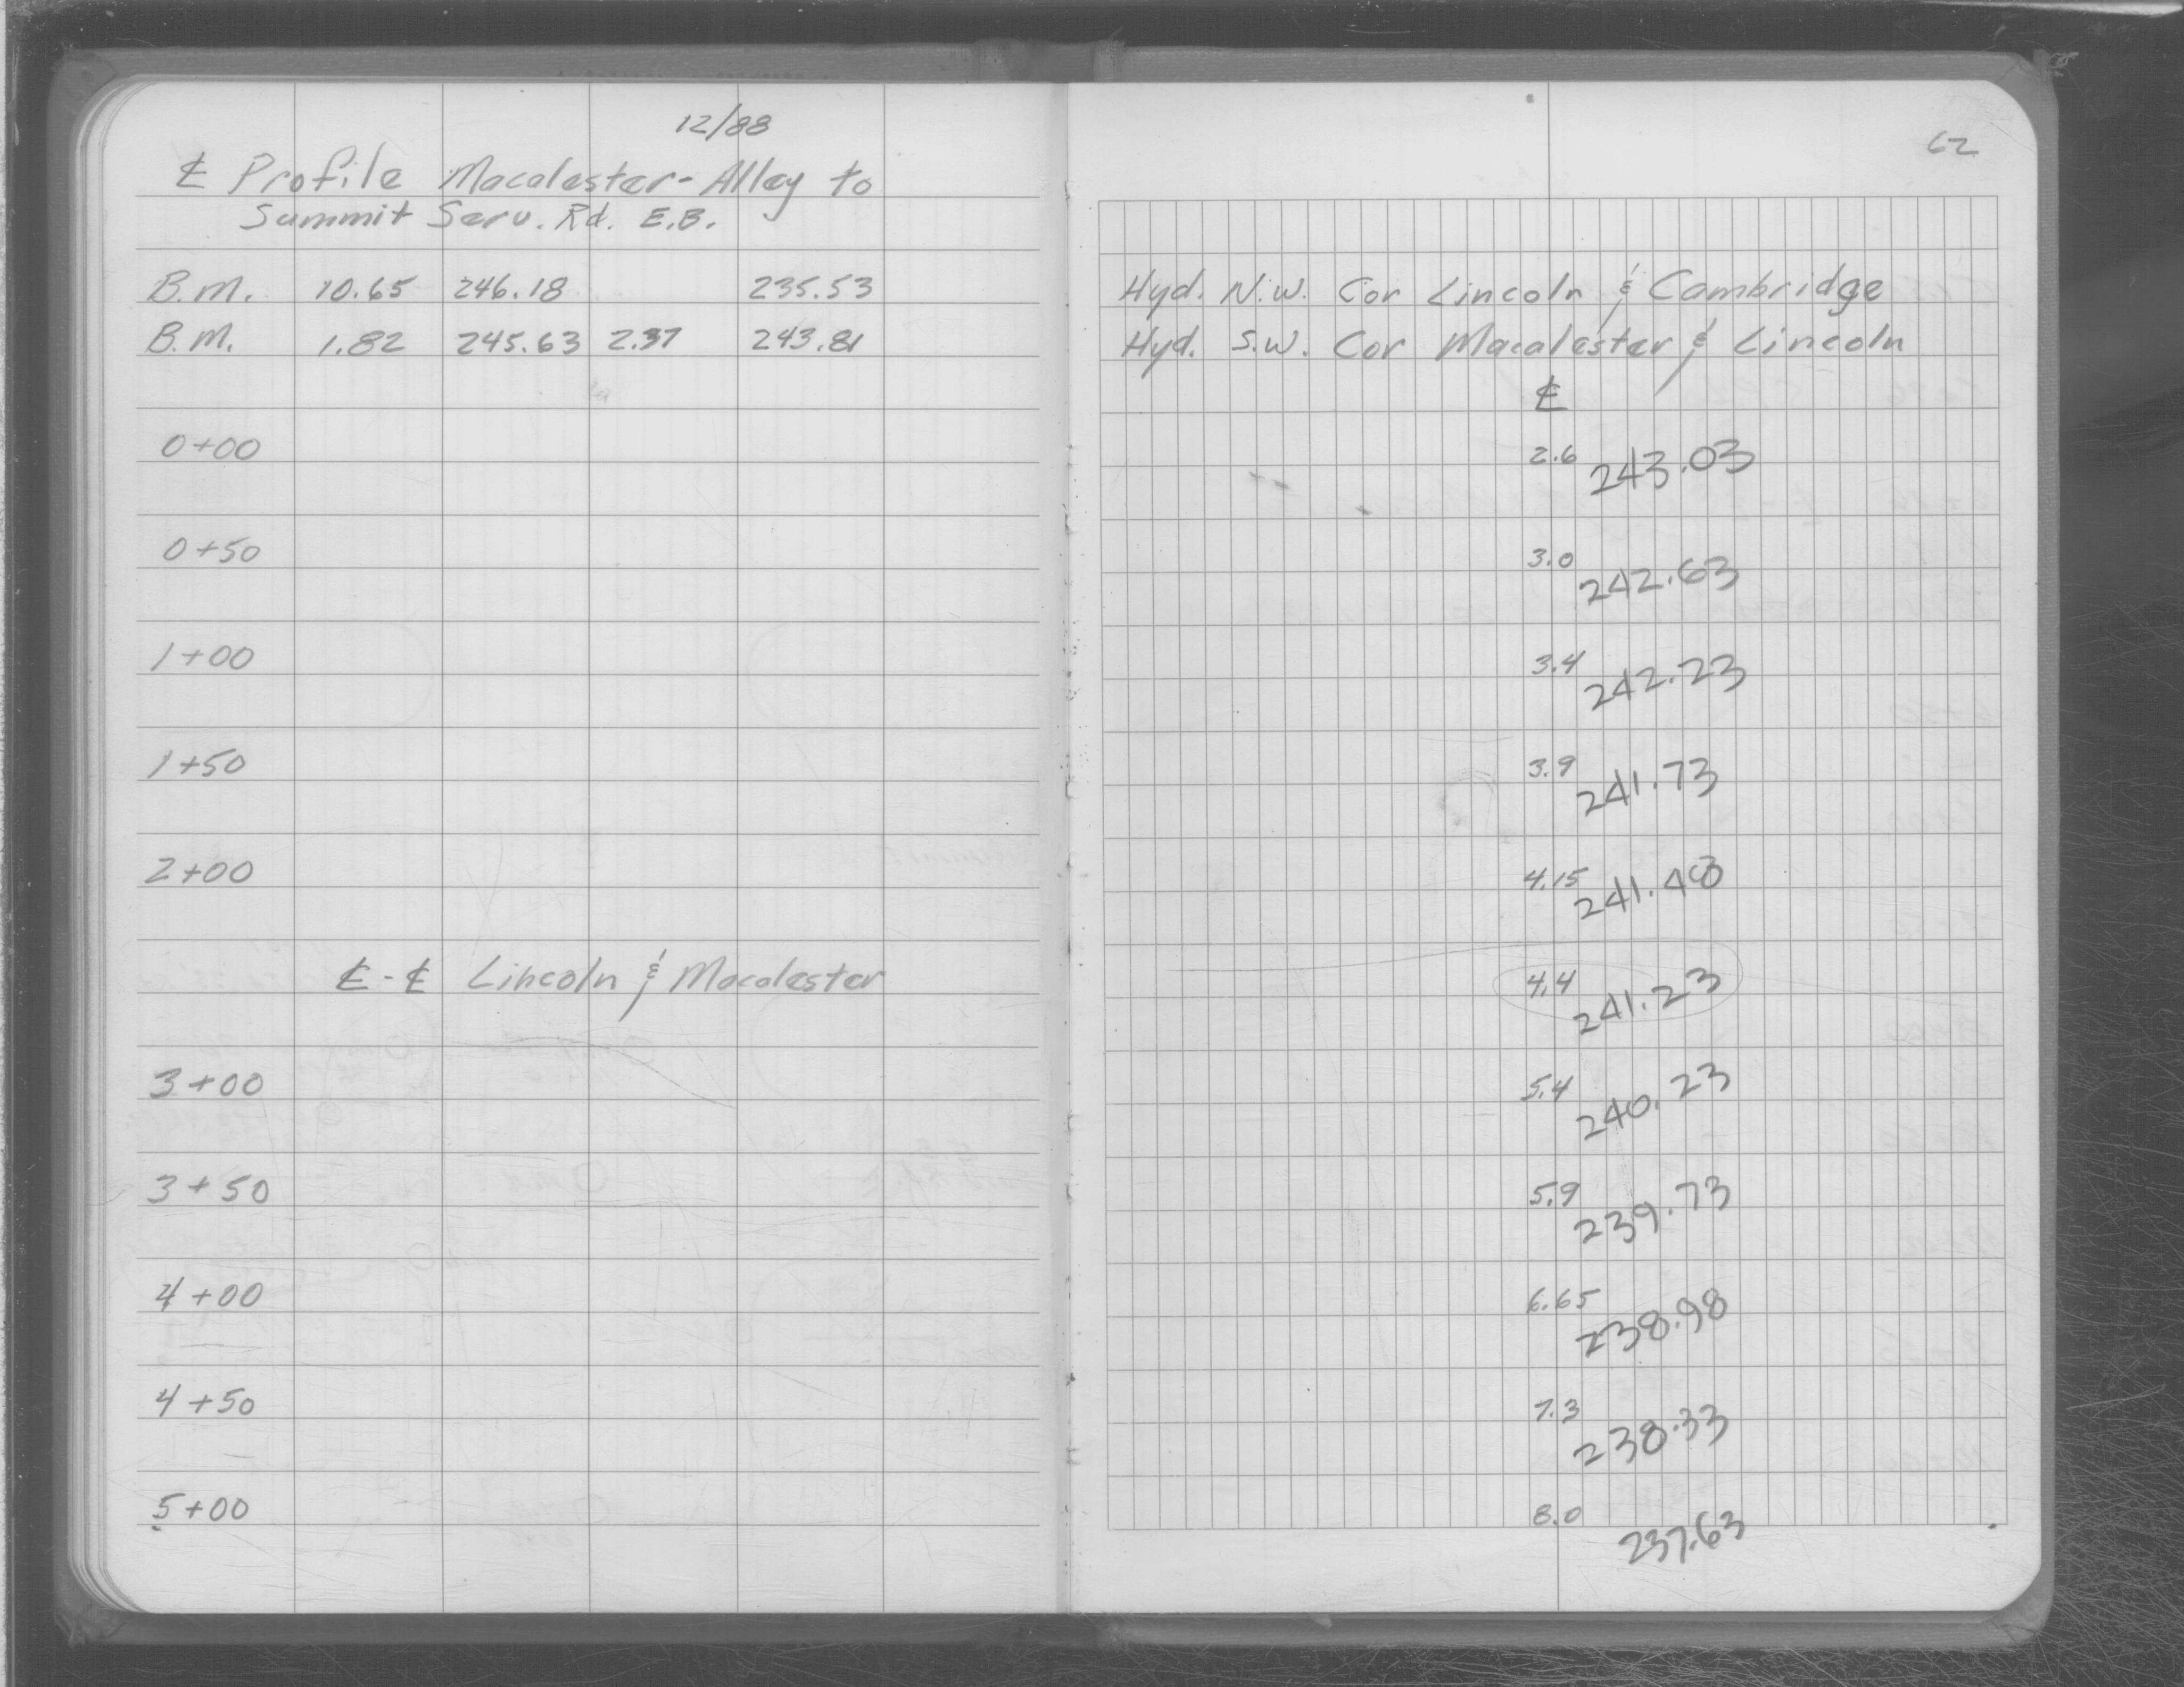 12/88
℄ Profile Macalester-Alley to
Summit Serv. Rd. E.B.
B.M. 10.65 246.18 235.53
B.M. 1.82 245.63 2.37 243.81
0+00
0+50
1+00
1+50
2+00
℄-℄ Lincoln & Macalester
3+00
3+50
4+00
4+50
5+00
62
Hyd. N.W. Cor Lincoln & Cambridge
Hyd. S.W. Cor Macalester & Lincoln
℄
2.6 243.03
3.0 242.63
3.4 242.23
3.9 241.73
4.15 241.48
4.4 241.23
5.4 240.23
5.9 239.73
6.65 238.98
7.3 238.33
8.0 237.63